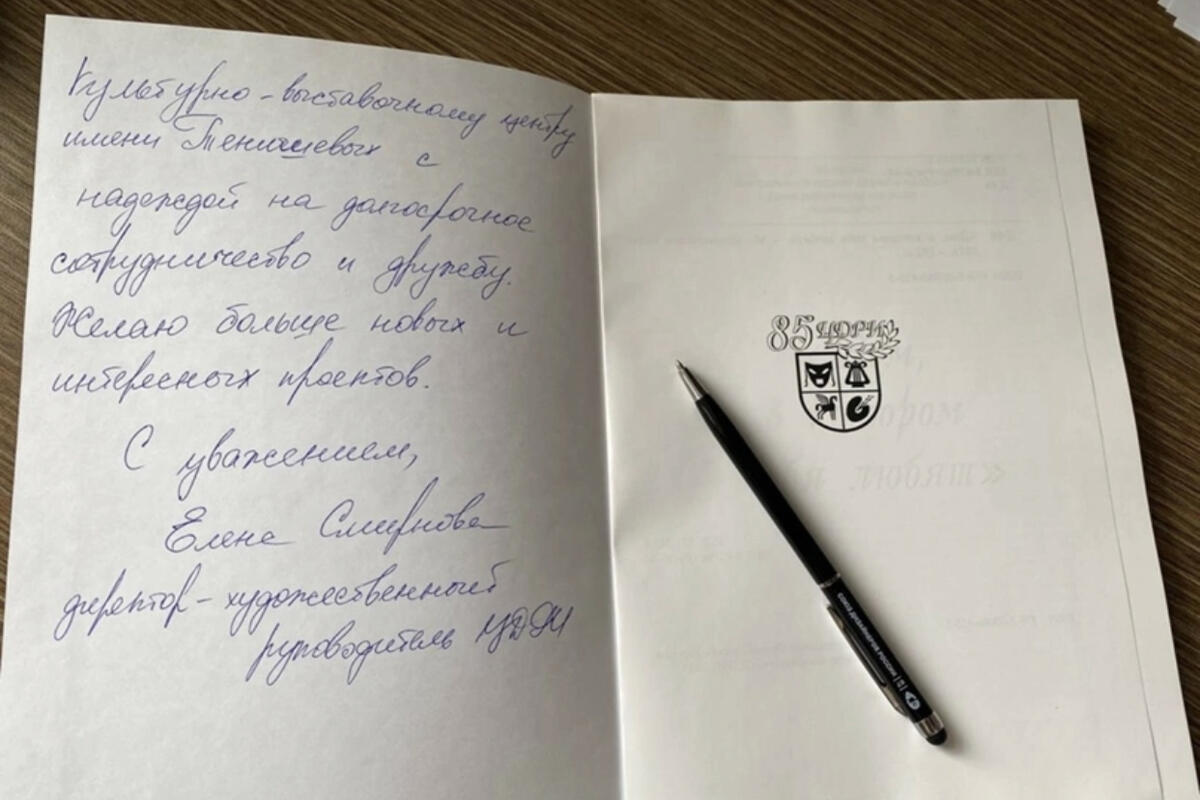 Культурно-выставочному центру
имени Тенишевых с
надеждой на долгосрочное
сотрудничество и дружбу.
Желаю больше новых и
интересных проектов.
С уважением,
Елена Смирнова
директор-художественный
руководитель ЦДРИ
85 ЦДРИ
СОЮЗ ДИЗАЙНЕРОВ РОССИИ